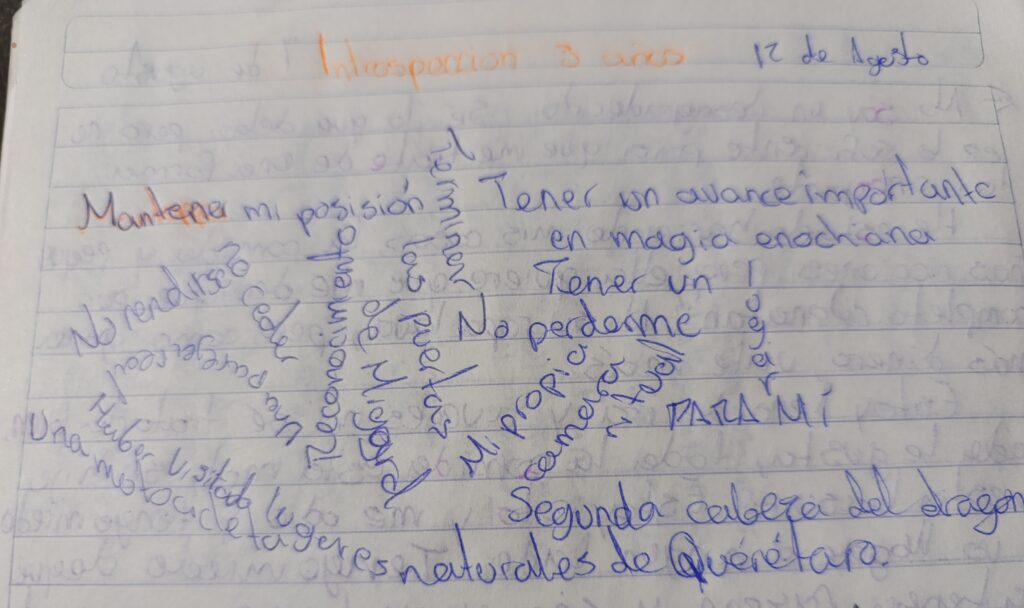 Introspeccion 3 años
12 de Agosto
Mantener mi posisión
terminar las puertas
Tener un avance importante
en magia enochiana
Tener un lugar
PARA MÍ
No perderme
No rendirse
Una pareja real
Reconocimiento
de Miranda
Mi propia
camersa
ritual
Una motocicleta
Haber visitado lugares naturales de Querétaro.
Segunda cabeza del dragon